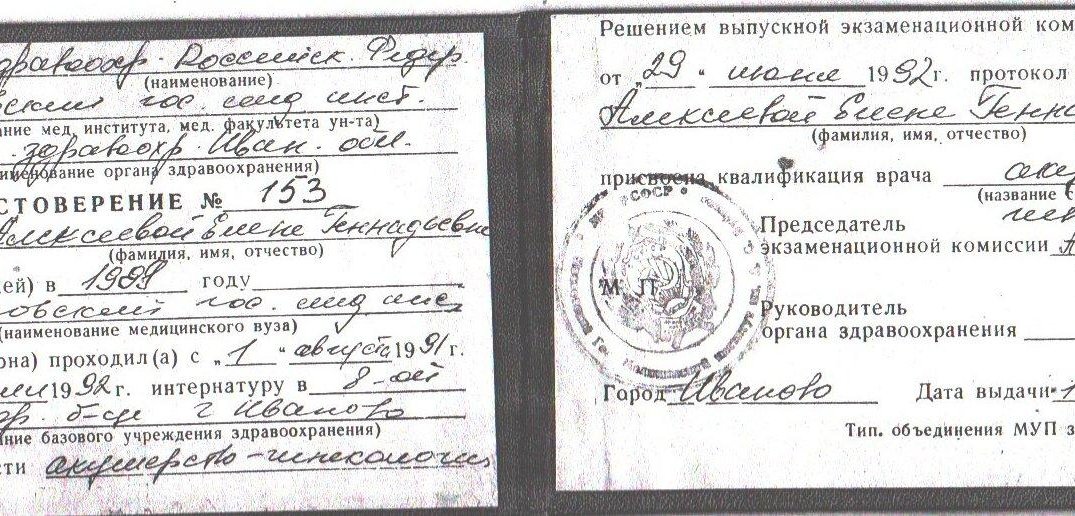 здравоохр. Российск. Федер.
(наименование)
вский гос. мед инст.
ание мед. института, мед. факультета ун-та)
. здравоохр. Иван. обл.
именование органа здравоохранения)
СТОВЕРЕНИЕ № 153
Алексеевой Елене Геннадьевне
(фамилия, имя, отчество)
ей) в году
овский гос. мед инс
(наименование медицинского вуза)
она) проходил(а) с „1" августа 1991г.
1992г. интернатуру в 8-ой
б-це г Иваново
ние базового учреждения здравоохранения)
сти акушерство-гинекология
Решением выпускной экзаменационной ком
от „29" июня 1992г. протокол
Алексеевой Елене Генна
(фамилия, имя, отчество)
присвоена квалификация врача аку
(название с
гин
Председатель
экзаменационной комиссии
М П
Руководитель
органа здравоохранения
Город Иваново Дата выдачи 1
Тип. объединения МУП з